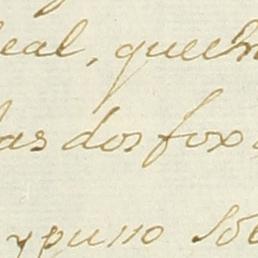 eal, que
las dos fox
y puso so